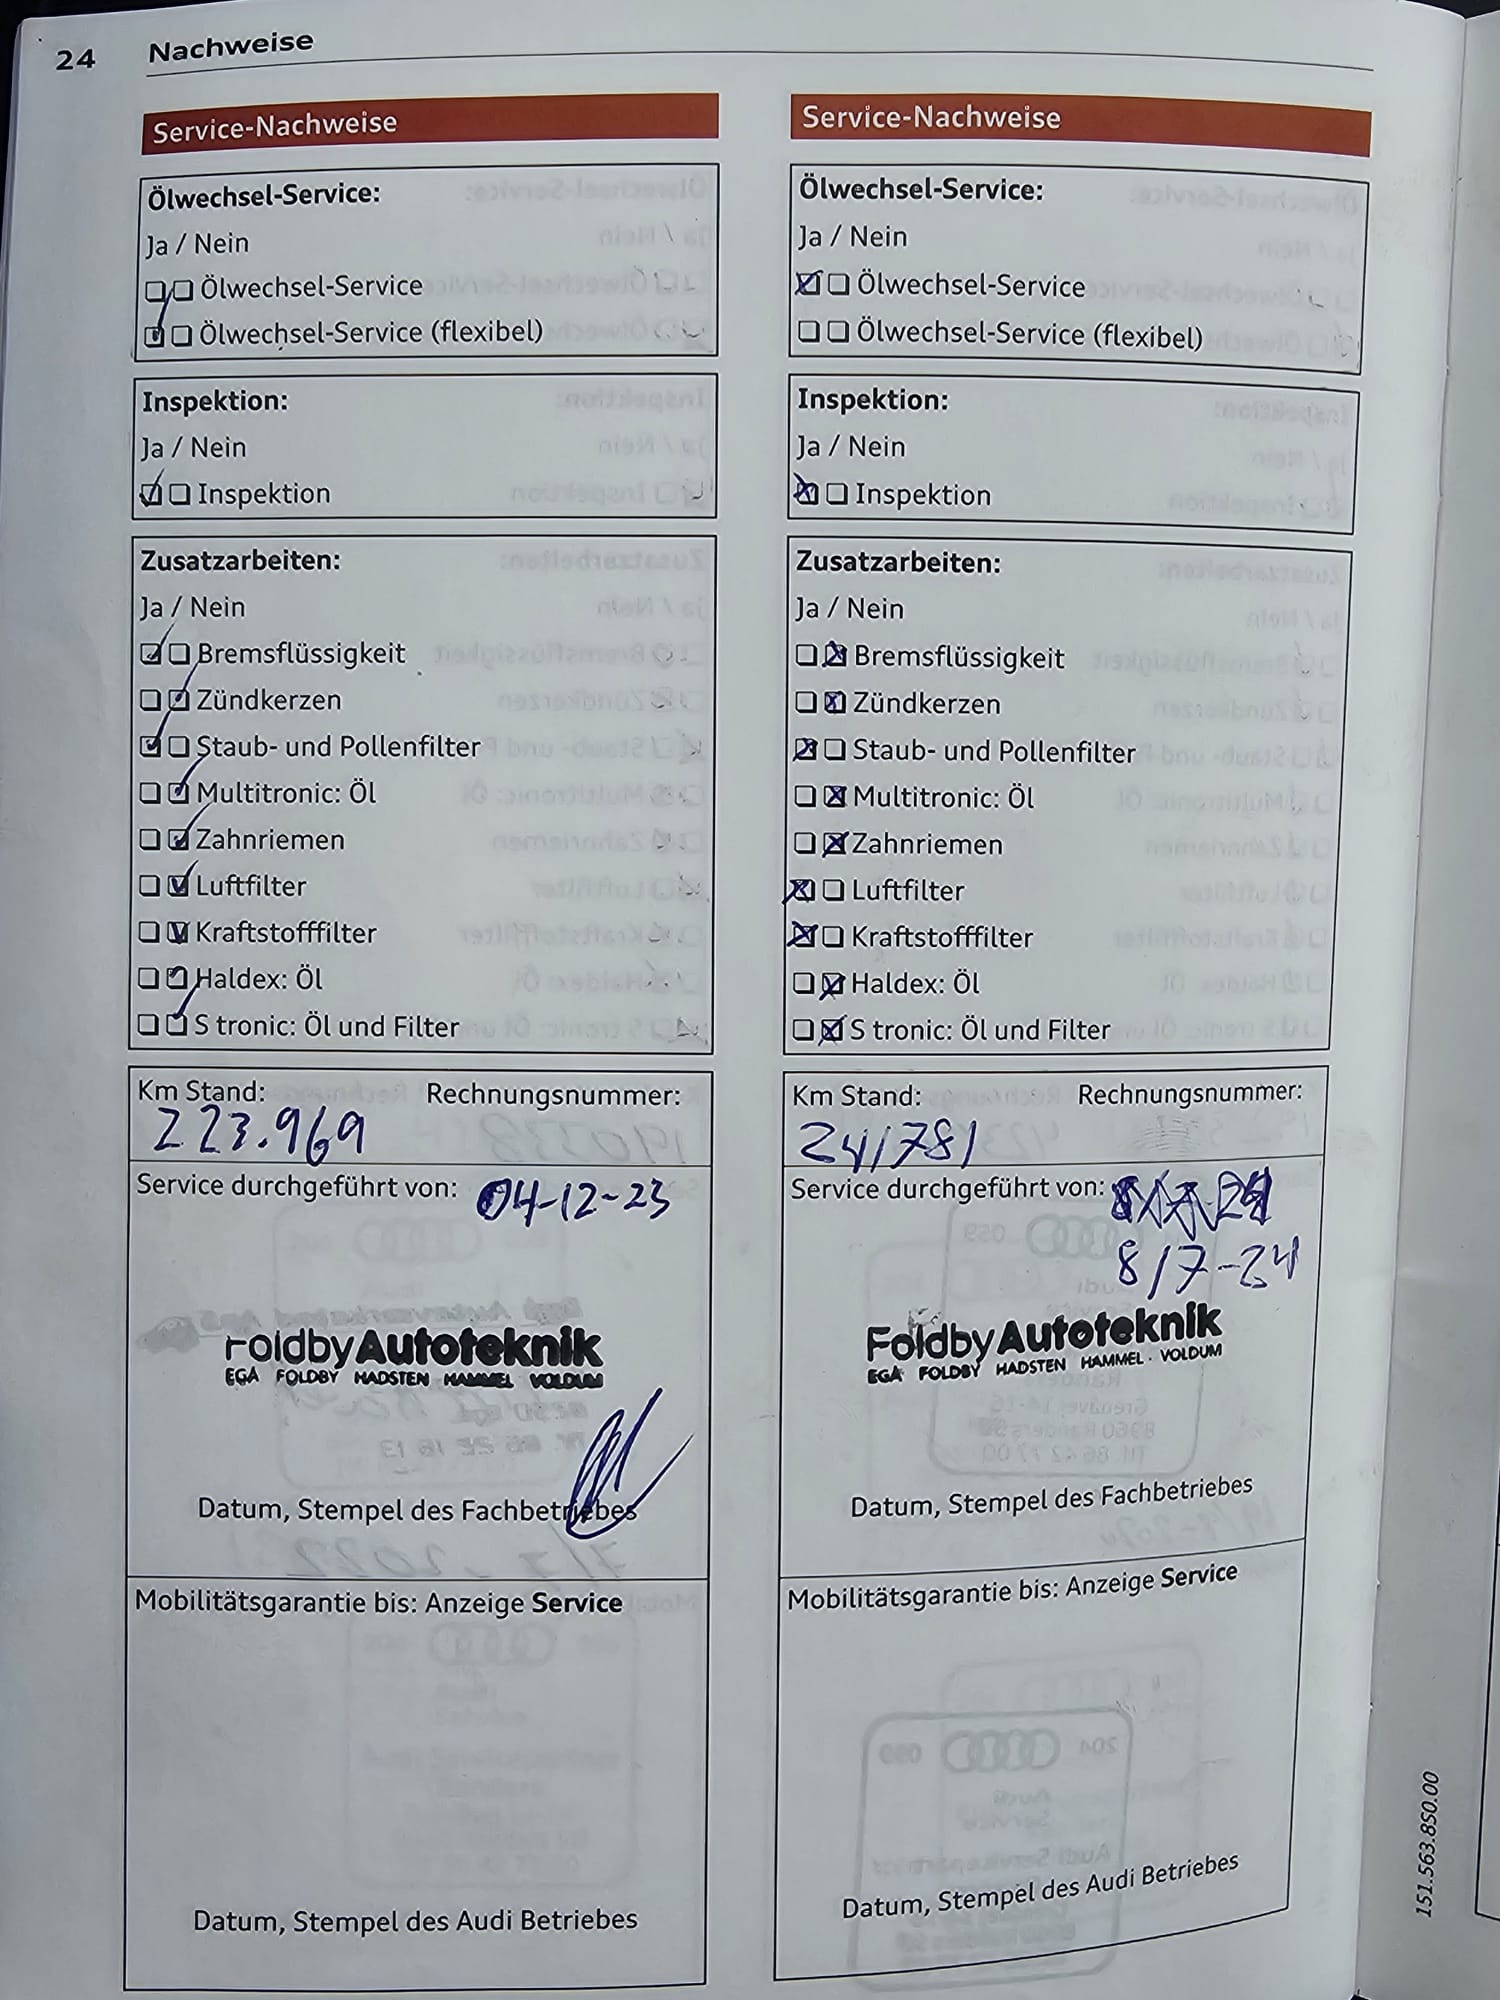 24 Nachweise
Service-Nachweise
Ölwechsel-Service:
Ja / Nein
Ölwechsel-Service
Ölwechsel-Service (flexibel)
Inspektion:
Ja / Nein
Inspektion
Zusatzarbeiten:
Ja / Nein
Bremsflüssigkeit
Zündkerzen
Staub- und Pollenfilter
Multitronic: Öl
Zahnriemen
Luftfilter
Kraftstofffilter
Haldex: Öl
S tronic: Öl und Filter
Km Stand: Rechnungsnummer:
223.969
Service durchgeführt von: 04-12-23
FoldbyAutoteknik
EGÅ FOLDBY HADSTEN HAMMEL VOLDUM
Datum, Stempel des Fachbetriebes
Mobilitätsgarantie bis: Anzeige Service
Datum, Stempel des Audi Betriebes
Service-Nachweise
Ölwechsel-Service:
Ja / Nein
Ölwechsel-Service
Ölwechsel-Service (flexibel)
Inspektion:
Ja / Nein
Inspektion
Zusatzarbeiten:
Ja / Nein
Bremsflüssigkeit
Zündkerzen
Staub- und Pollenfilter
Multitronic: Öl
Zahnriemen
Luftfilter
Kraftstofffilter
Haldex: Öl
S tronic: Öl und Filter
Km Stand: Rechnungsnummer:
241781
Service durchgeführt von:
8/7-24
FoldbyAutoteknik
EGÅ FOLDBY HADSTEN HAMMEL · VOLDUM
Datum, Stempel des Fachbetriebes
Mobilitätsgarantie bis: Anzeige Service
Datum, Stempel des Audi Betriebes
151.563.8S0.00